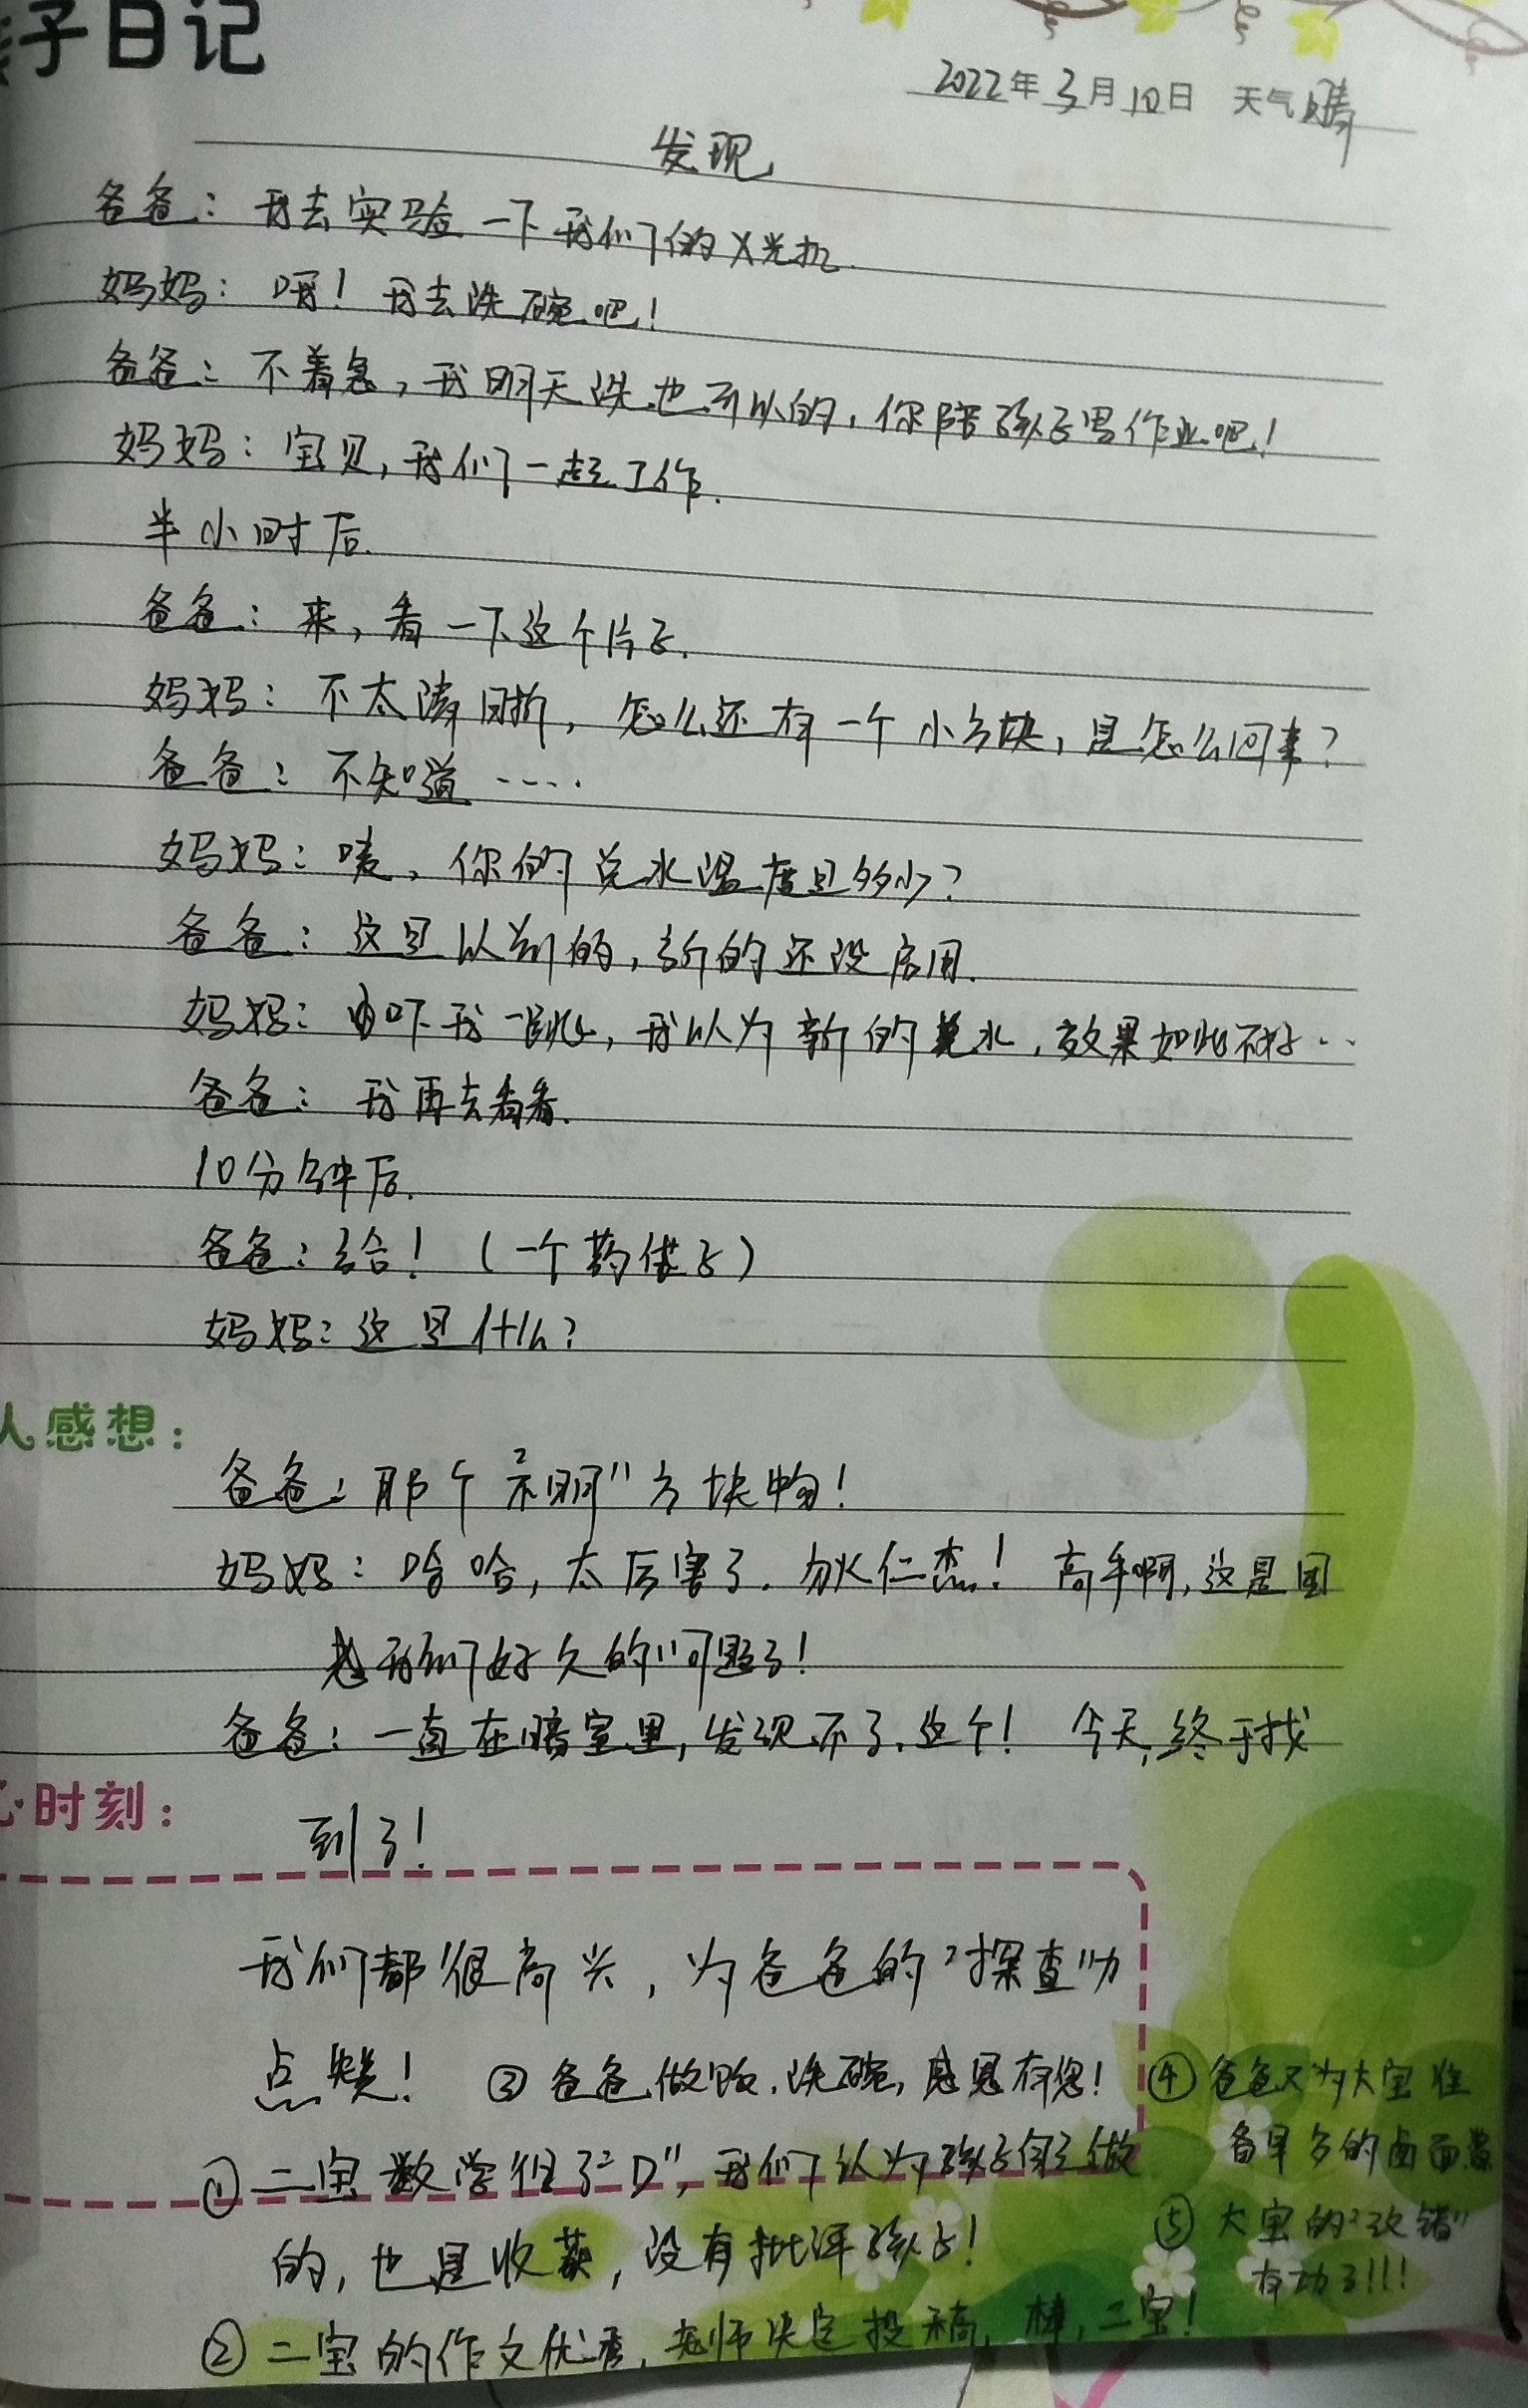 子日记
2022年3月10日 天气晴
发现
爸爸：我去实验一下我们的X光机.
妈妈：哦！我去洗碗吧！
爸爸：不着急，我明天洗也可以的，你陪孩子写作业吧！
妈妈：宝贝，我们一起工作.
半小时后.
爸爸：来，看一下这个片子.
妈妈：不太清晰，怎么还有一个小方块，是怎么回事？
爸爸：不知道……
妈妈：咦，你的兑水温度是多少？
爸爸：这是以前的，新的还没启用.
妈妈：吓我一跳，我以为新的兑水，效果如此不好…
爸爸：我再去看看.
10分钟后.
爸爸：给！（一个药袋子）
妈妈：这是什么？
人感想：
爸爸：那个“不明”方块物！
妈妈：哈哈，太厉害了.狄仁杰！高手啊，这是困
惑我们好久的问题了！
爸爸：一直在暗室里，发现不了.这个！今天，终于找
到了！
心时刻：
我们都很高兴，为爸爸的“探查”力
点赞！ ③爸爸做饭.洗碗，感恩有您！
④爸爸又为大宝准
备早多的卤面
①二宝数学得了“D”，我们认为孩子自己做
的，也是收获，没有批评孩子！
⑤大宝的“改错”
有功了!!!
②二宝的作文优秀，老师决定投稿，棒，二宝！